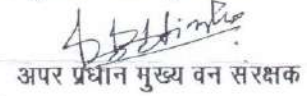 अपर प्रधान मुख्य वन संरक्षक